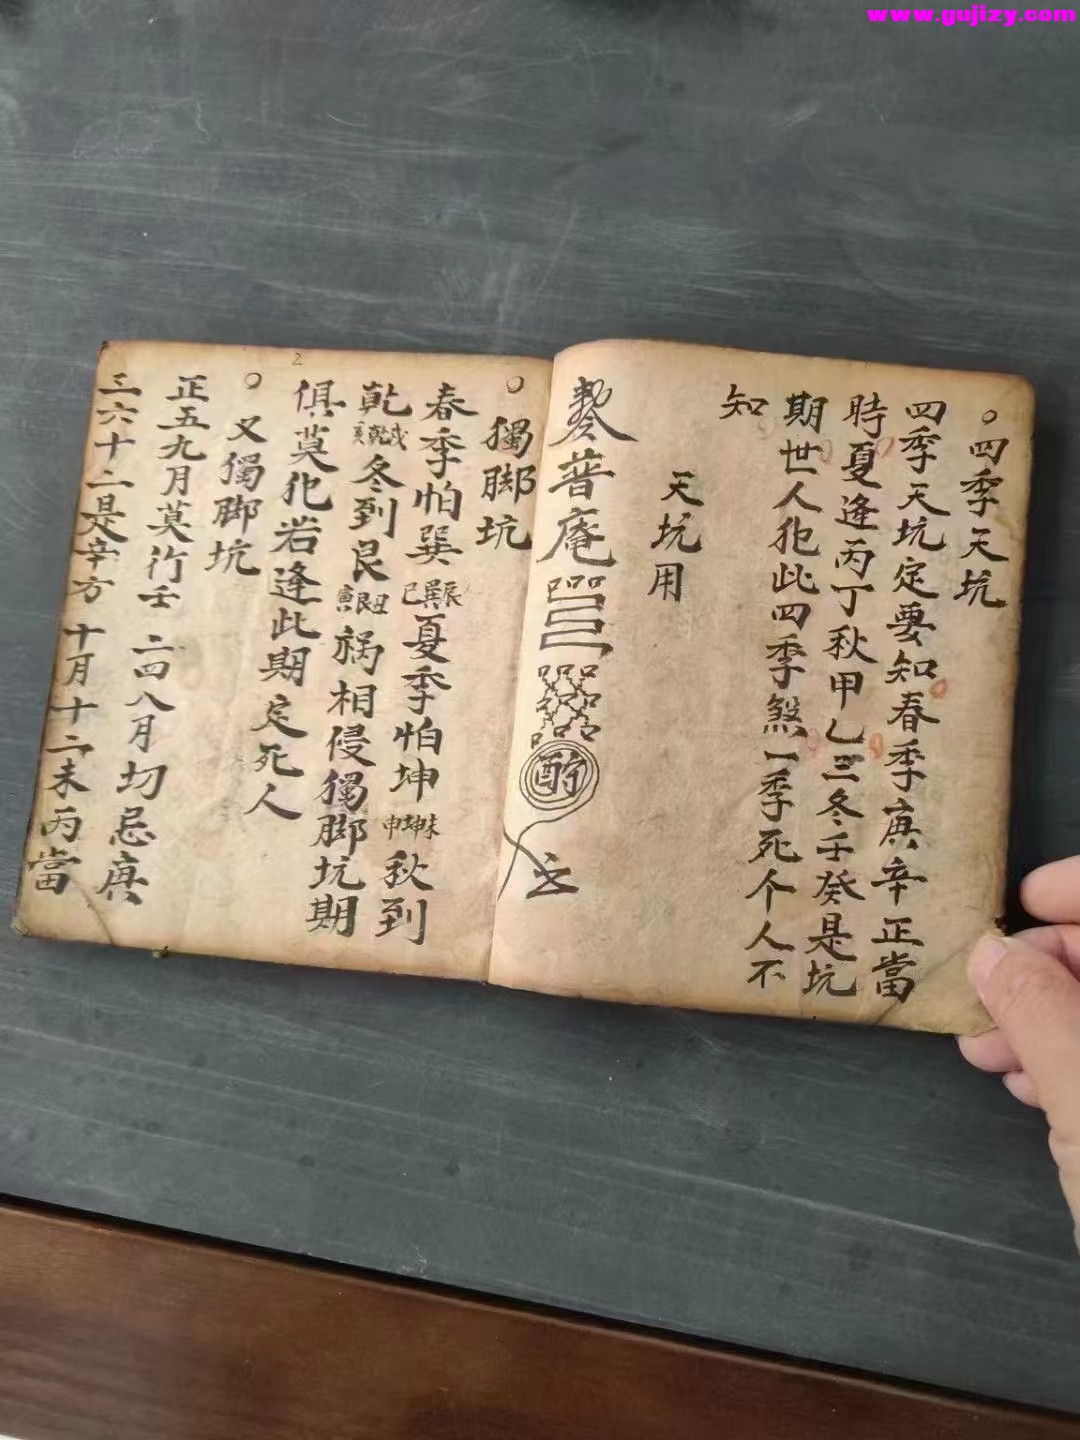 www.gujizy.com
四季天坑
四季天坑定要知春季庚辛正當
時夏逢丙丁秋甲乙三冬壬癸是坑
期世人犯此四季煞一季死个人不
知
天坑用
普庵
獨脚坑
春季怕巽巳巽辰夏季怕坤申坤未秋到
乾亥乾戌冬到艮寅艮丑禍相侵獨脚坑期
俱莫犯若逢此期定死人
又獨脚坑
正五九月莫行壬 二四八月切忌庚
三六十二是辛方 十月十二未丙當
2